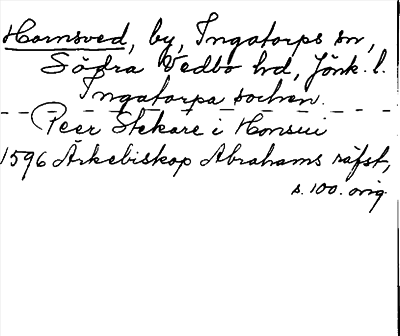 Hornsved, by, Ingatorps sn,
Södra Vedbo hd, Jönk. l.
Ingatorpa sochen.
Peer Stekare i Honsui
1596 Ärkebiskop Abrahams räfst,
s. 100. orig.